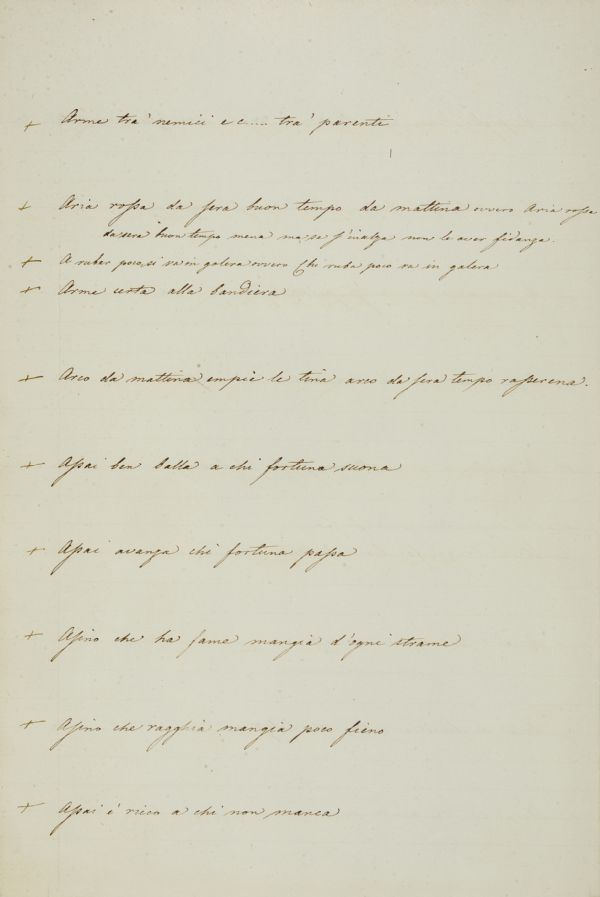 + Arme tra' nemici e c..... tra' parenti
+ Aria rossa da sera buon tempo da mattina ovvero Aria rossa
da sera buon tempo mena ma se s'inalza non le aver fidanza.
+ A rubar poco, si va in galera ovvero Chi ruba poco va in galera
+ Arme certa alla bandiera
+ Arco da mattina empie le tina arco da sera tempo rasserena.
+ Assai ben balla a chi fortuna suona
+ Assai avanza chi fortuna passa
+ Asino che ha fame mangia d'ogni strame
+ Asino che ragghia mangia poco fieno
+ Assai è ricco a chi non manca